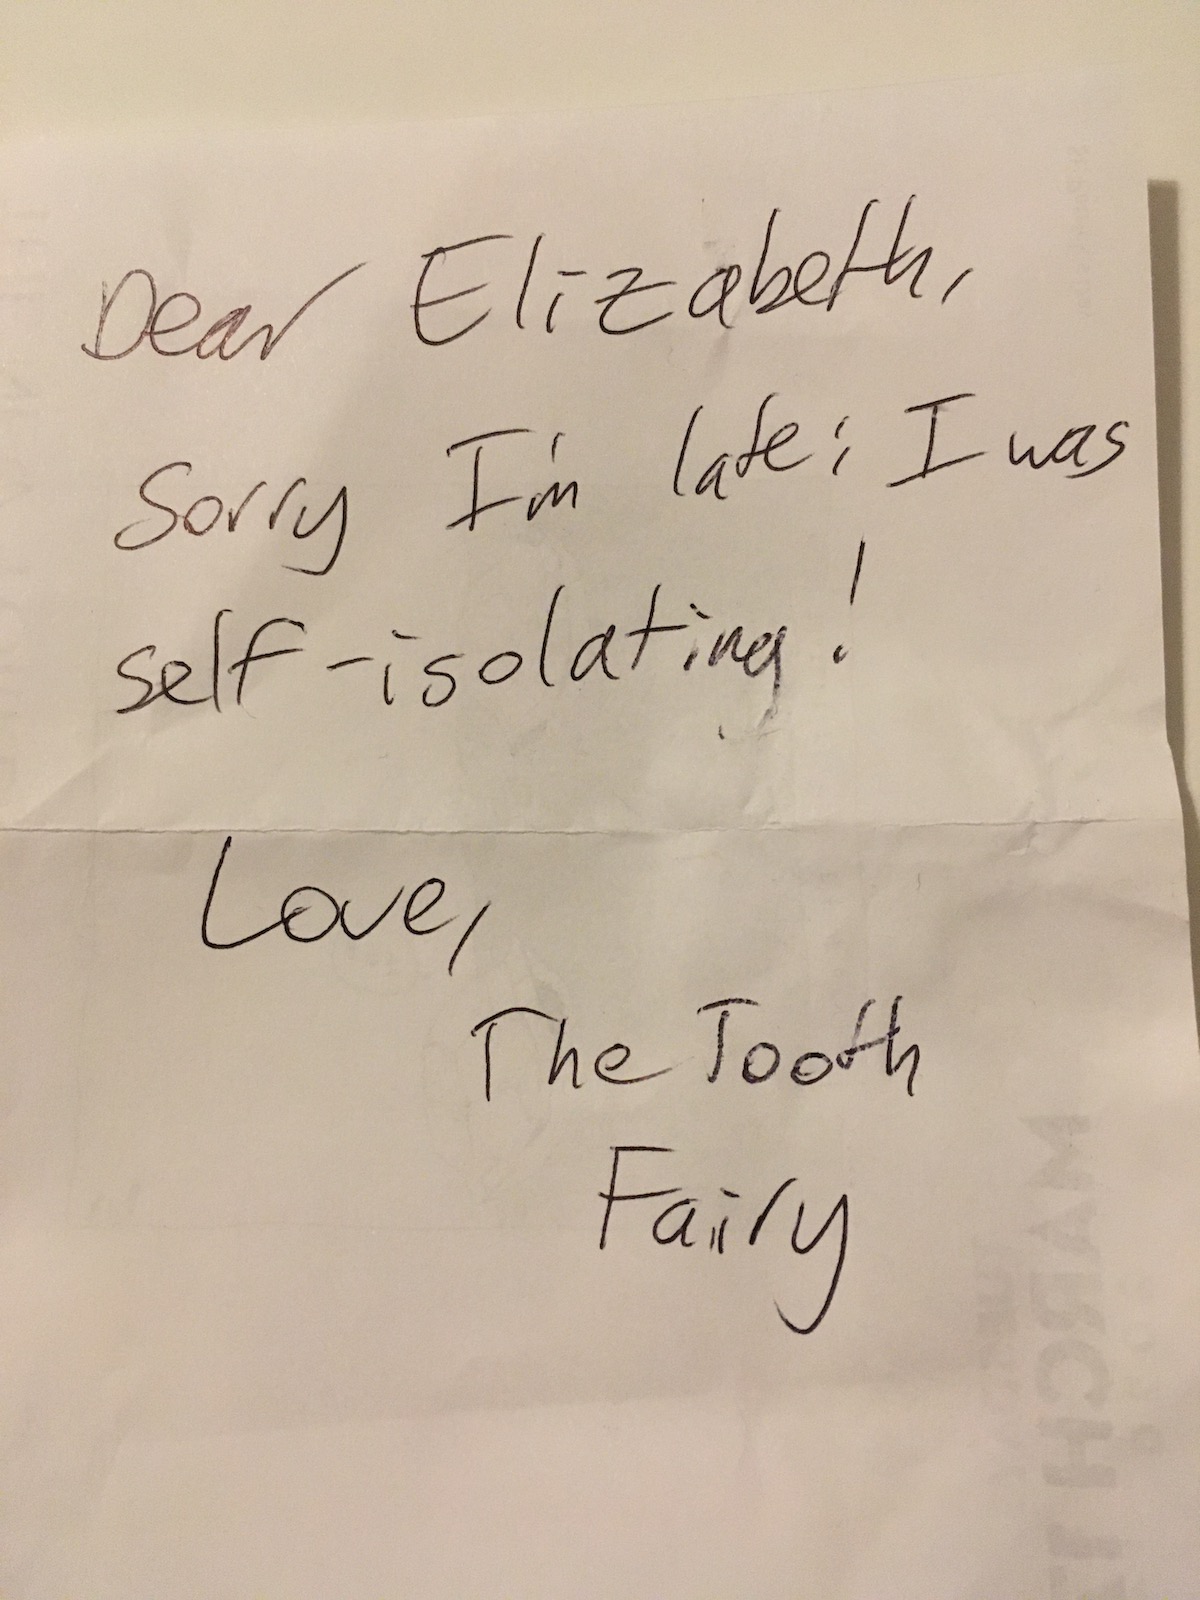 Dear Elizabeth,
Sorry I'm late; I was
self-isolating!
Love,
The Tooth
Fairy
MARCH